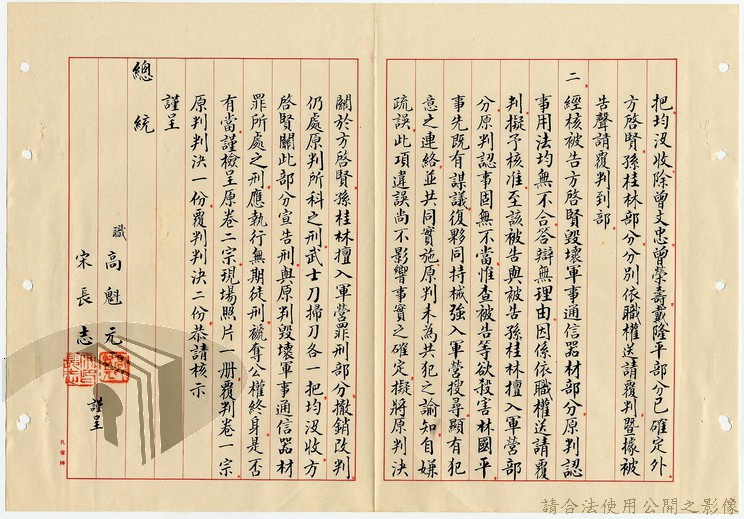 把均沒收除曾文忠曾榮壽戴隆平部分已確定外
方啓賢孫桂林部分分別依職權送請覆判暨據被
告聲請覆判到部
二
經核被告方啓賢毀壞軍事通信器材部分原判認
事用法均無不合答辯無理由因係依職權送請覆
判擬予核准至該被告與被告孫桂林擅入軍營部
分原判認事固無不當惟查被告等欲殺害林國平
事先既有謀議復夥同持械強入軍營搜尋顯有犯
意之連絡並共同實施原判未為共犯之諭知自嫌
疏誤此項違誤尚不影響事實之確定擬將原判決
關於方啓賢孫桂林擅入軍營罪刑部分撤銷改判
仍處原判所科之刑武士刀掃刀各一把均沒收方
啓賢關此部分宣告刑與原判毀壞軍事通信器材
罪所處之刑應執行無期徒刑褫奪公權終身是否
有當謹檢呈原卷二宗現場照片一册覆判卷一宗
原判判決一份覆判判決二份恭請核示
謹呈
總統
職
高魁元
宋長志
謹呈
請合法使用公開之影像